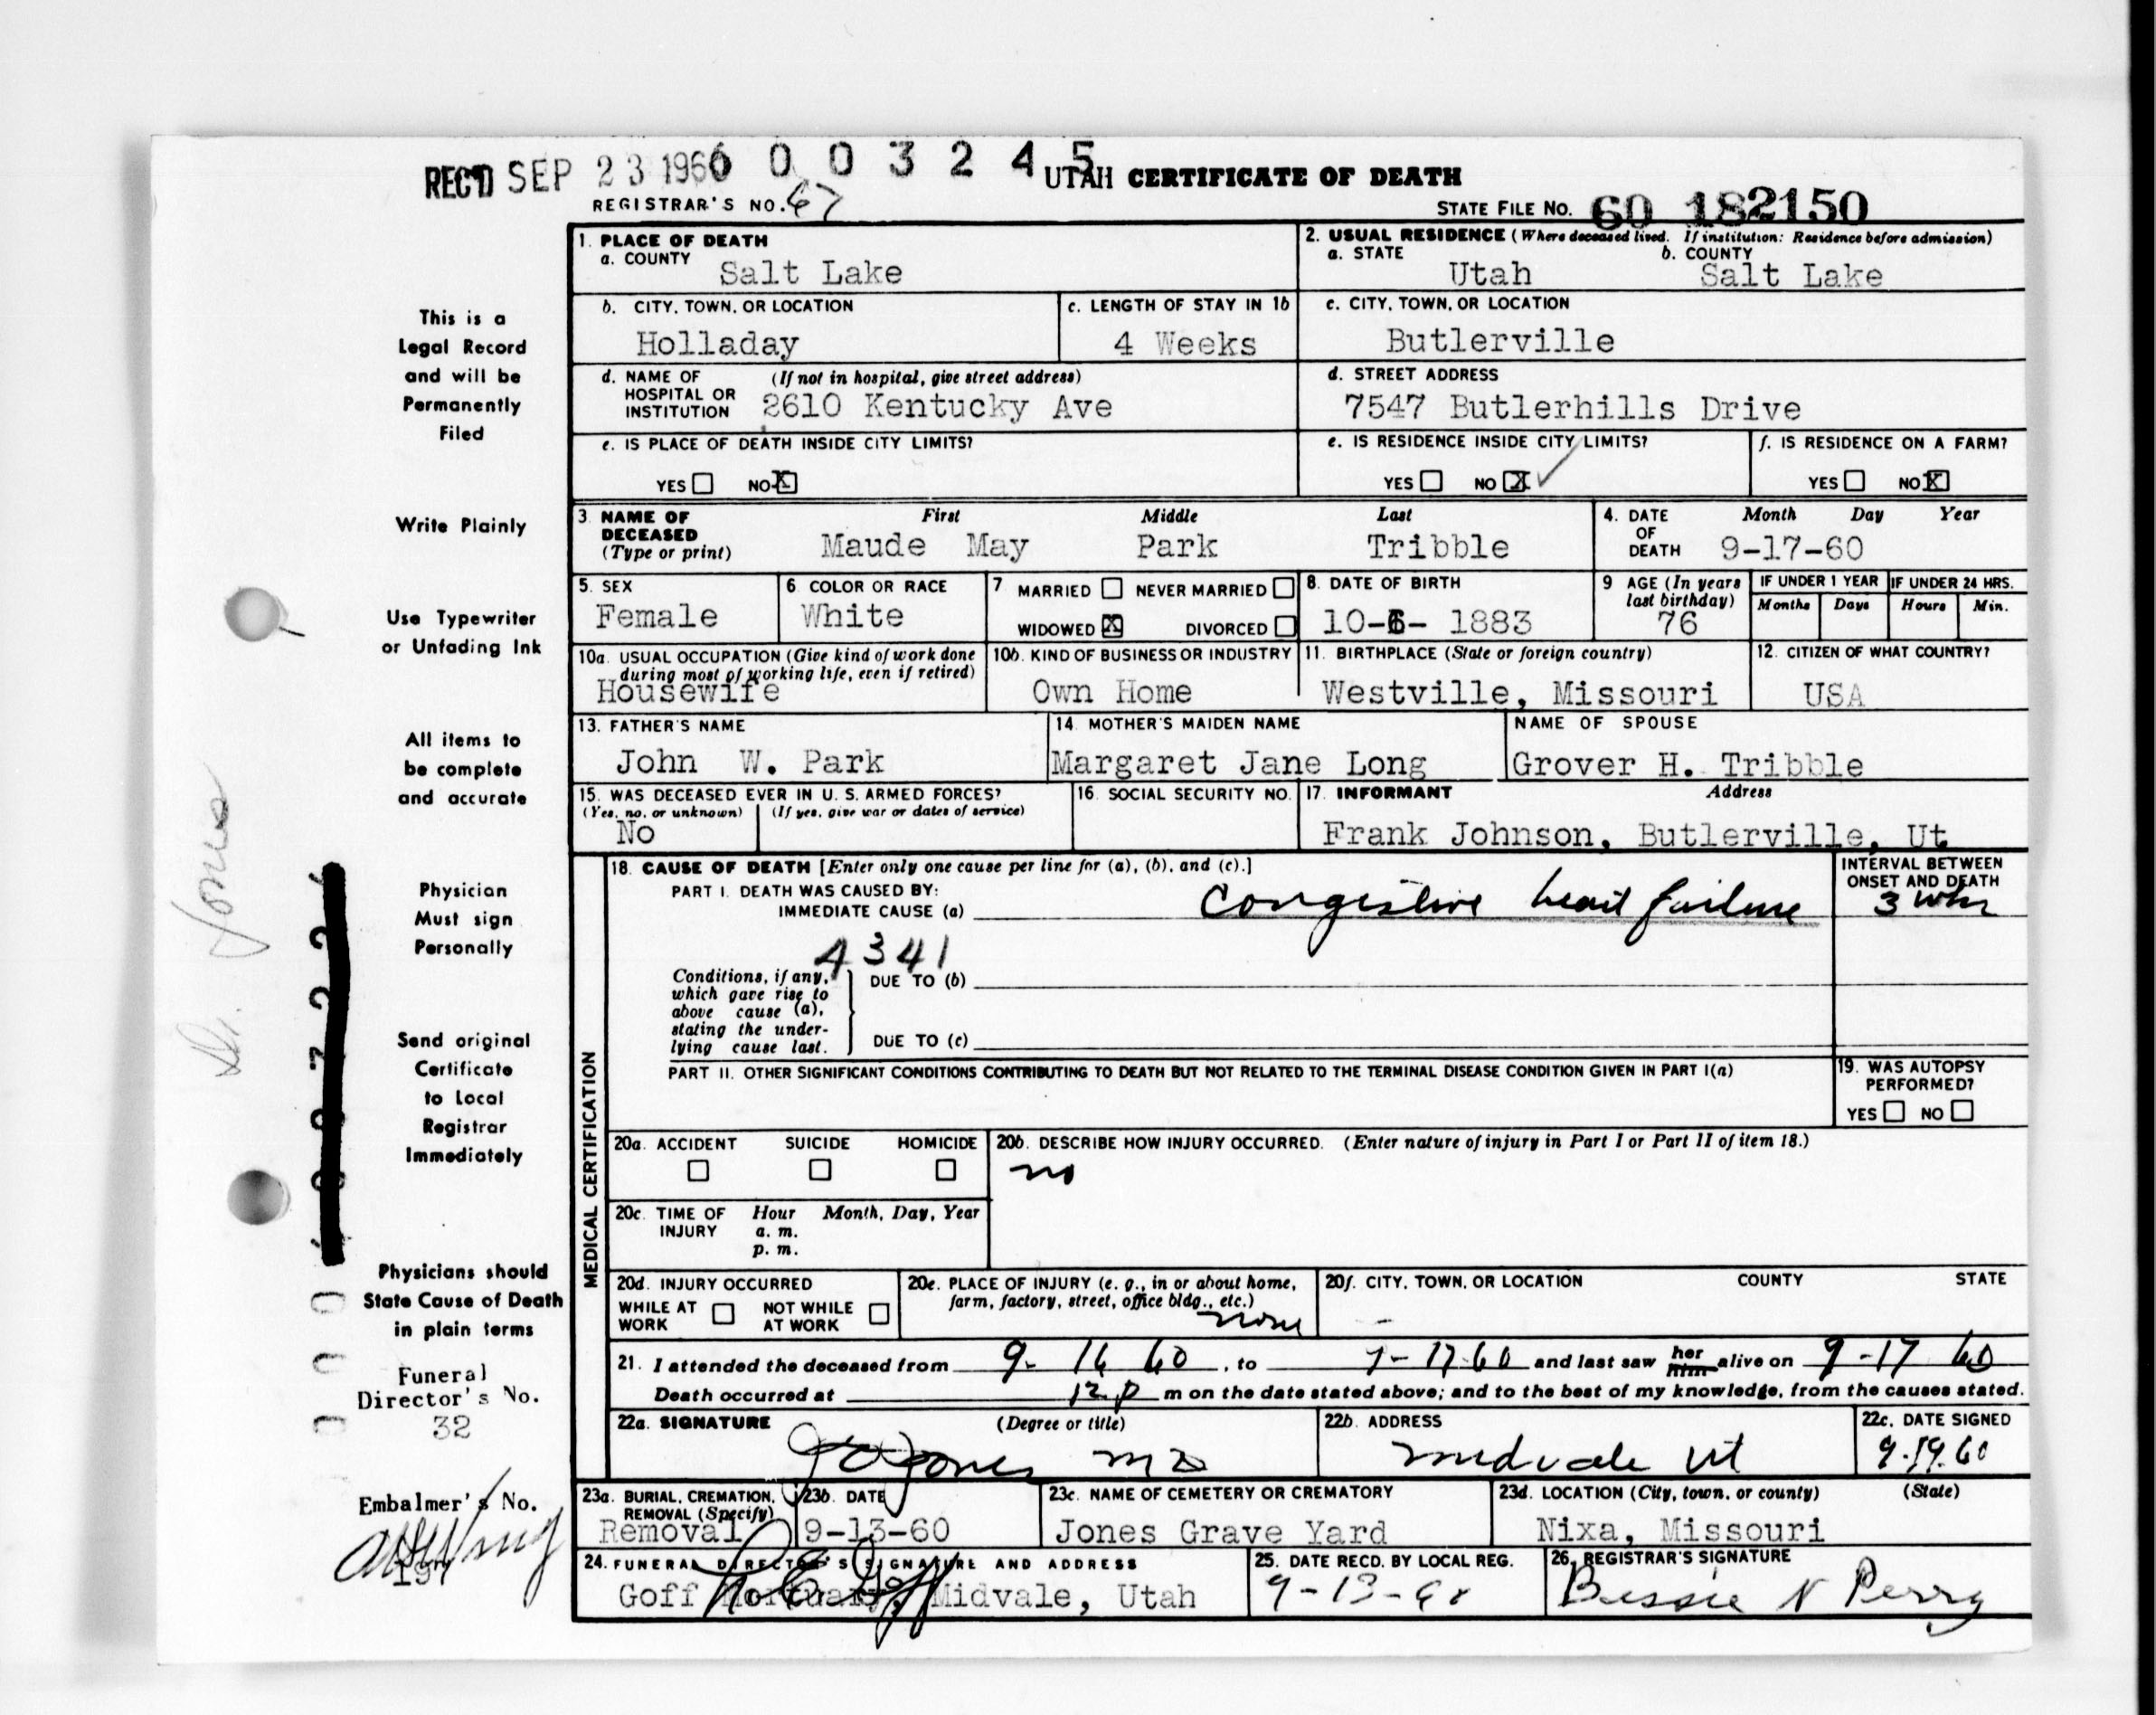 REC'D SEP 23 1960 0 0 3 2 4 5
UTAH CERTIFICATE OF DEATH
REGISTRAR'S NO. 67
STATE FILE NO. 60 182150
1. PLACE OF DEATH
a. COUNTY Salt Lake
2. USUAL RESIDENCE (Where deceased lived. If institution: Residence before admission)
a. STATE Utah b. COUNTY Salt Lake
b. CITY, TOWN, OR LOCATION Holladay
c. LENGTH OF STAY IN 1b 4 Weeks
c. CITY, TOWN, OR LOCATION Butlerville
d. NAME OF HOSPITAL OR INSTITUTION (If not in hospital, give street address) 2610 Kentucky Ave
d. STREET ADDRESS 7547 Butlerhills Drive
e. IS PLACE OF DEATH INSIDE CITY LIMITS?
YES NO X
e. IS RESIDENCE INSIDE CITY LIMITS?
YES NO X
f. IS RESIDENCE ON A FARM?
YES NO X
3. NAME OF DECEASED (Type or print)
First Middle Last
Maude May Park Tribble
4. DATE OF DEATH Month Day Year
9-17-60
5. SEX Female
6. COLOR OR RACE White
7 MARRIED NEVER MARRIED
WIDOWED X DIVORCED
8. DATE OF BIRTH 10-6- 1883
9 AGE (In years last birthday) 76
IF UNDER 1 YEAR Months Days
IF UNDER 24 HRS. Hours Min.
10a. USUAL OCCUPATION (Give kind of work done during most of working life, even if retired)
Housewife
10b. KIND OF BUSINESS OR INDUSTRY
Own Home
11. BIRTHPLACE (State or foreign country)
Westville, Missouri
12. CITIZEN OF WHAT COUNTRY?
USA
13. FATHER'S NAME
John W. Park
14. MOTHER'S MAIDEN NAME
Margaret Jane Long
NAME OF SPOUSE
Grover H. Tribble
15. WAS DECEASED EVER IN U. S. ARMED FORCES?
(Yes, no, or unknown) (If yes, give war or dates of service)
No
16. SOCIAL SECURITY NO.
17. INFORMANT Address
Frank Johnson, Butlerville, Ut
MEDICAL CERTIFICATION
18. CAUSE OF DEATH [Enter only one cause per line for (a), (b), and (c).]
PART I. DEATH WAS CAUSED BY:
IMMEDIATE CAUSE (a) Congestive heart failure
INTERVAL BETWEEN ONSET AND DEATH
3
4341
Conditions, if any, which gave rise to above cause (a), stating the underlying cause last.
DUE TO (b)
DUE TO (c)
PART II. OTHER SIGNIFICANT CONDITIONS CONTRIBUTING TO DEATH BUT NOT RELATED TO THE TERMINAL DISEASE CONDITION GIVEN IN PART I(a)
19. WAS AUTOPSY PERFORMED?
YES NO
20a. ACCIDENT SUICIDE HOMICIDE
20b. DESCRIBE HOW INJURY OCCURRED. (Enter nature of injury in Part I or Part II of item 18.)
no
20c. TIME OF INJURY Hour Month, Day, Year
a. m.
p. m.
20d. INJURY OCCURRED
WHILE AT WORK NOT WHILE AT WORK
20e. PLACE OF INJURY (e. g., in or about home, farm, factory, street, office bldg., etc.)
none
20f. CITY, TOWN, OR LOCATION COUNTY STATE
-
21. I attended the deceased from 9- 16 60, to 9-17-60 and last saw her him alive on 9-17 60
Death occurred at 12 p m on the date stated above; and to the best of my knowledge, from the causes stated.
22a. SIGNATURE (Degree or title)
Jones MD
22b. ADDRESS
Midvale Ut
22c. DATE SIGNED
9.19.60
23a. BURIAL, CREMATION, REMOVAL (Specify)
Removal
23b. DATE
9-13-60
23c. NAME OF CEMETERY OR CREMATORY
Jones Grave Yard
23d. LOCATION (City, town, or county) (State)
Nixa, Missouri
24. FUNERAL DIRECTOR'S SIGNATURE AND ADDRESS
Goff Mortuary, Midvale, Utah
25. DATE RECD. BY LOCAL REG.
9-13-60
26. REGISTRAR'S SIGNATURE
Bessie N Perry
This is a
Legal Record
and will be
Permanently
Filed
Write Plainly
Use Typewriter
or Unfading Ink
All items to
be complete
and accurate
Physician
Must sign
Personally
Send original
Certificate
to Local
Registrar
Immediately
Physicians should
State Cause of Death
in plain terms
Funeral
Director's No.
32
Embalmer's No.
Dr. Jones